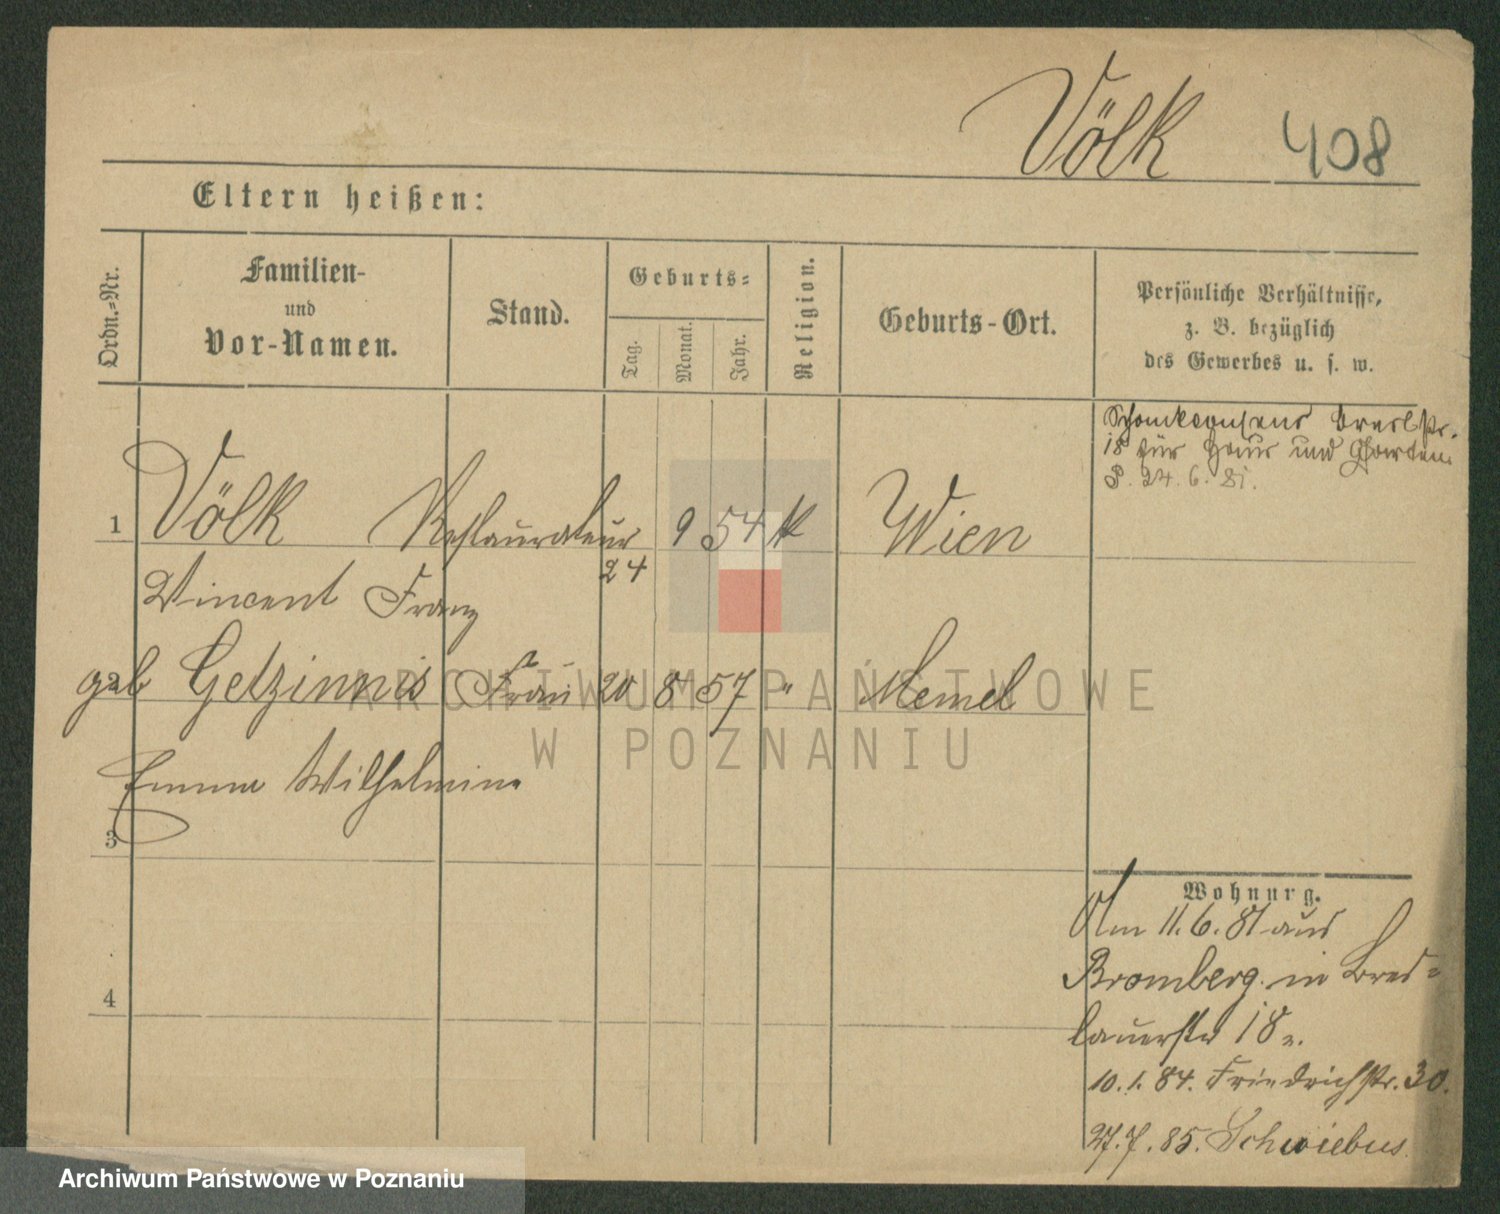 Völk 408
Eltern heißen:
Ordn.=Nr.
Familien-
und
Vor-Namen.
Stand.
Geburts=
Tag.
Monat.
Jahr.
Religion.
Geburts-Ort.
Persönliche Verhältnisse,
z. B. bezüglich
des Gewerbes u. s. w.
Schankconsens Breslstr.
18 für Haus und Garten.
P. 24. 6. 81.
1 Völk Restaurateur 9 54 k Wien
24
Vincent Franz
geb Getzinnis Frau 20 8 57 " Memel
Emma Wilhelmine
3
4
Wohnung.
Am 11. 6. 81 aus
Bromberg in Bres=
lauerstr 18
10. 1. 84. Friedrichstr. 30.
27. 7. 85. Schwiebus
ARCHIWUM PAŃSTWOWE
W POZNANIU
Archiwum Państwowe w Poznaniu